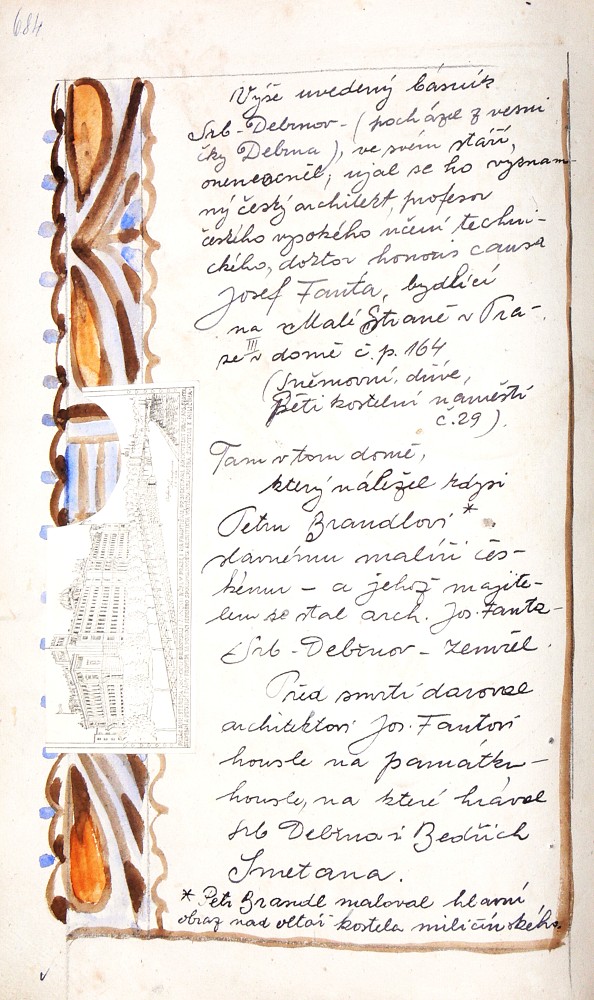 684
Výše uvedený básník
Srb-Debrnov - (pocházel z vesni
čky Debrna), ve svém stáří,
onemocněl; ujal se ho význam-
ný český architekt profesor
českého vysokého učení techni-
ckého, doktor honoris causa
Josef Fanta, bydlící
na Malé Straně v Pra-
ze III v domě č.p. 164
(Sněmovní, dříve,
Pěti kostelní náměstí
č.29).
Tam v tom domě,
který náležel kdysi
Petru Brandlovi *
slavnému malíři čes-
kému - a jehož majite-
lem se stal arch. Jos. Fanta -
Srb - Debrnov - zemřel.
Před smrtí daroval
architektovi Jos. Fantovi
housle na památku -
housle, na které hrával
Srb Debrna i Bedřich
Smetana.
* Petr Brandl maloval hlavní
obraz nad oltář kostela miličínského.